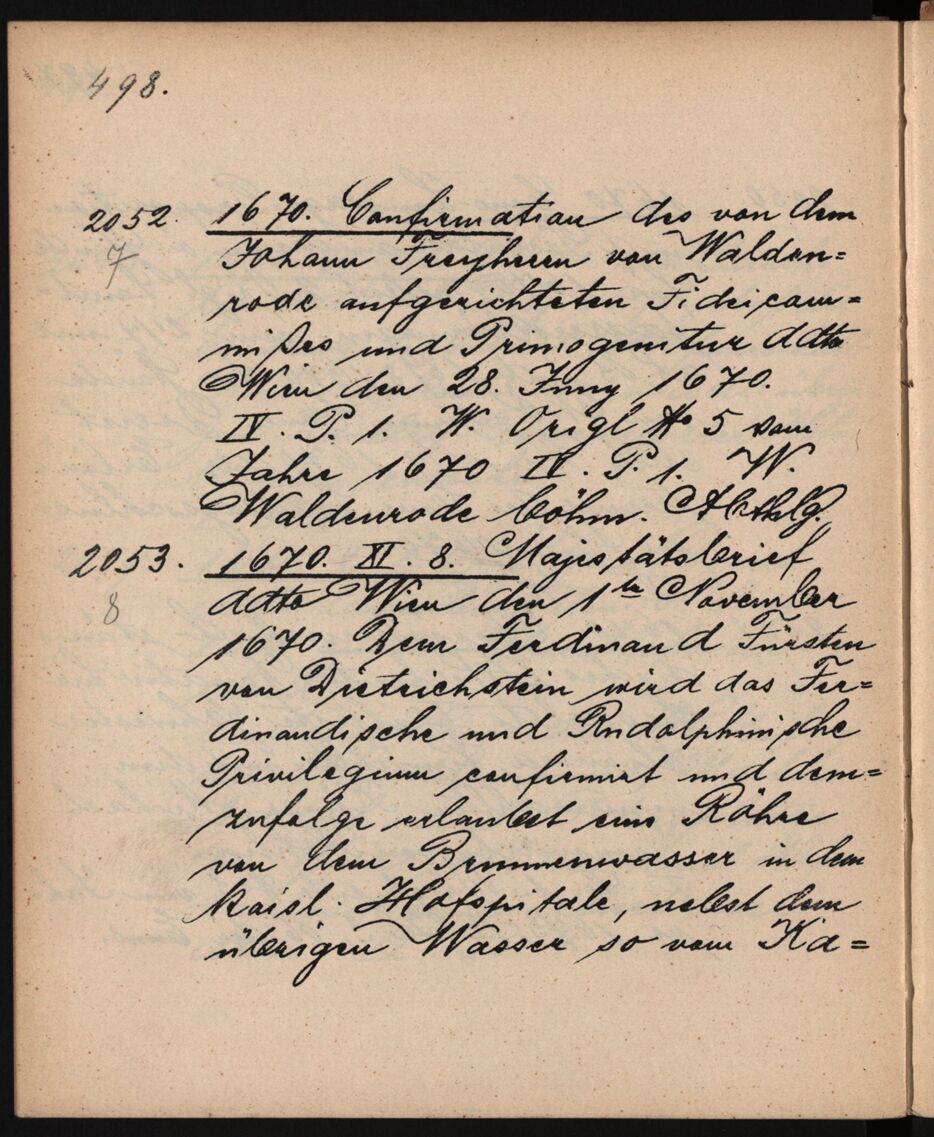 498.
2052. 1670. Confirmation des von dem
7 Johann Freyherrn von Walden=
rode aufgerichteten Fideicom=
mißes und Primogenitur ddto
Wien den 28. Juny 1670.
IV. P. 1. W. Origl No 5 vom
Jahre 1670 IV. P. 1. W.
Waldenrode böhm. Abthlg.
2053. 1670. XI. 8. Majestätsbrief
8 ddto Wien den 1ten November
1670. Dem Ferdinand Fürsten
von Dietrichstein wird das Fer=
dinandische und Rudolphinische
Privilegium confirmirt und dem=
zufolge erlaubet eine Röhre
von dem Brunnenwasser in dem
kaisl. Hofspitale, nebst dem
übrigen Wasser so vom Ka=